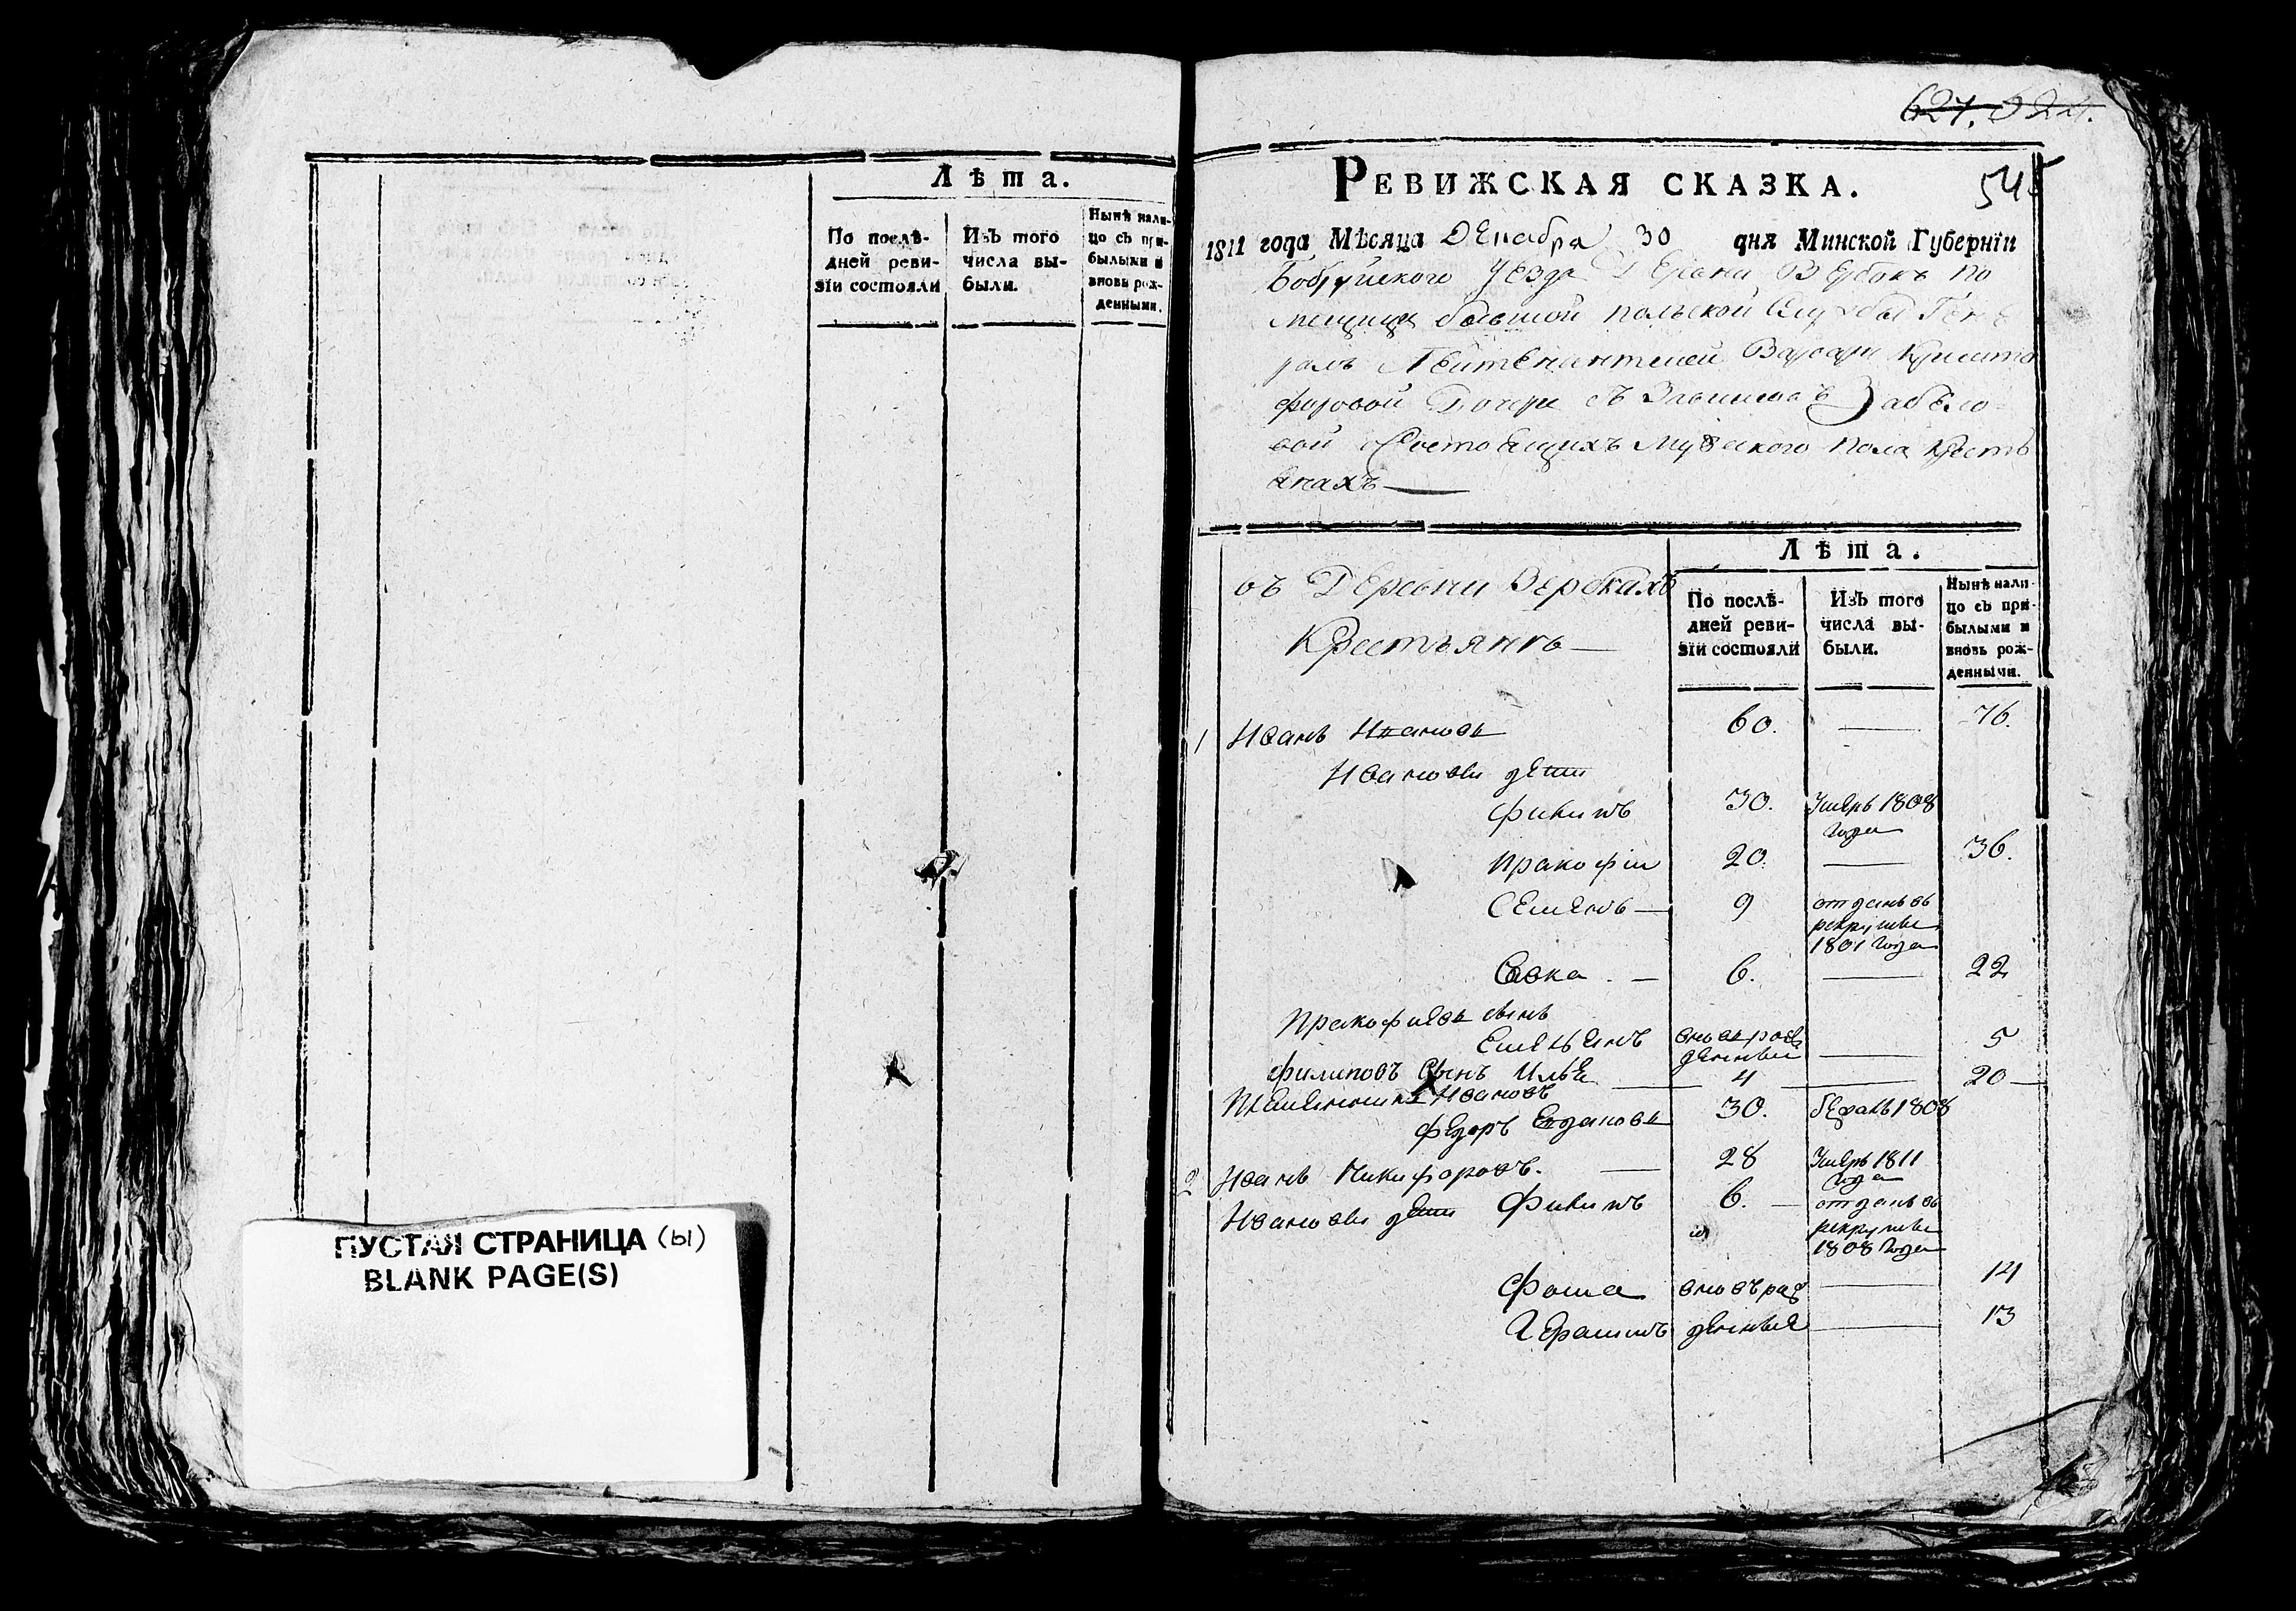 Лѣта.
По послѣ-
дней реви-
зіи состояли
Изъ того
числа вы-
были.
Нынѣ нали-
цо съ при-
былыми и
вновь рож-
денными.
ПУСТАЯ СТРАНИЦА (ы)
BLANK PAGE(S)
627.
545
РЕВИЖСКАЯ СКАЗКА.
1811 года Мѣсяца Декабра 30 дня Минской Губерніи
Бобруйского уезда Деревни Вербокъ по
мещицы бывшой польской Службы Гене
ралъ Лейтенантшей Варвары Кришто
форовой Дочери съ Забело-
вой Состоещихъ мужеского пола Крестъ
енахъ
въ Деревни Вербкахъ
Крестъянъ
Лѣта.
По послѣ-
дней реви-
зіи состояли
Изъ того
числа вы-
были.
Нынѣ нали-
цо съ при-
былыми и
вновь рож-
денными.
1 Иванъ Ивановъ 60. 76.
Ивановы дети
Филипъ 30. Умеръ 1808
года
Пракофіи 20. 36.
Семенъ 9 отданъ въ
рекруты
1801 года
Савка 6. 22
Пракофиевъ сынъ
Емельенъ вновь рож 5
денный
Филиповъ Сынъ Илье 4 20
Племенникъ Ивановъ
Федоръ Богдановъ 30. бежалъ 1808
2 Иванъ Никифоровъ. 28 Умеръ 1811
года
Ивановы дети Филипъ 6. отданъ въ
рекруты
1808 года
Фома вновъ рож 14
Герасимъ денные 13